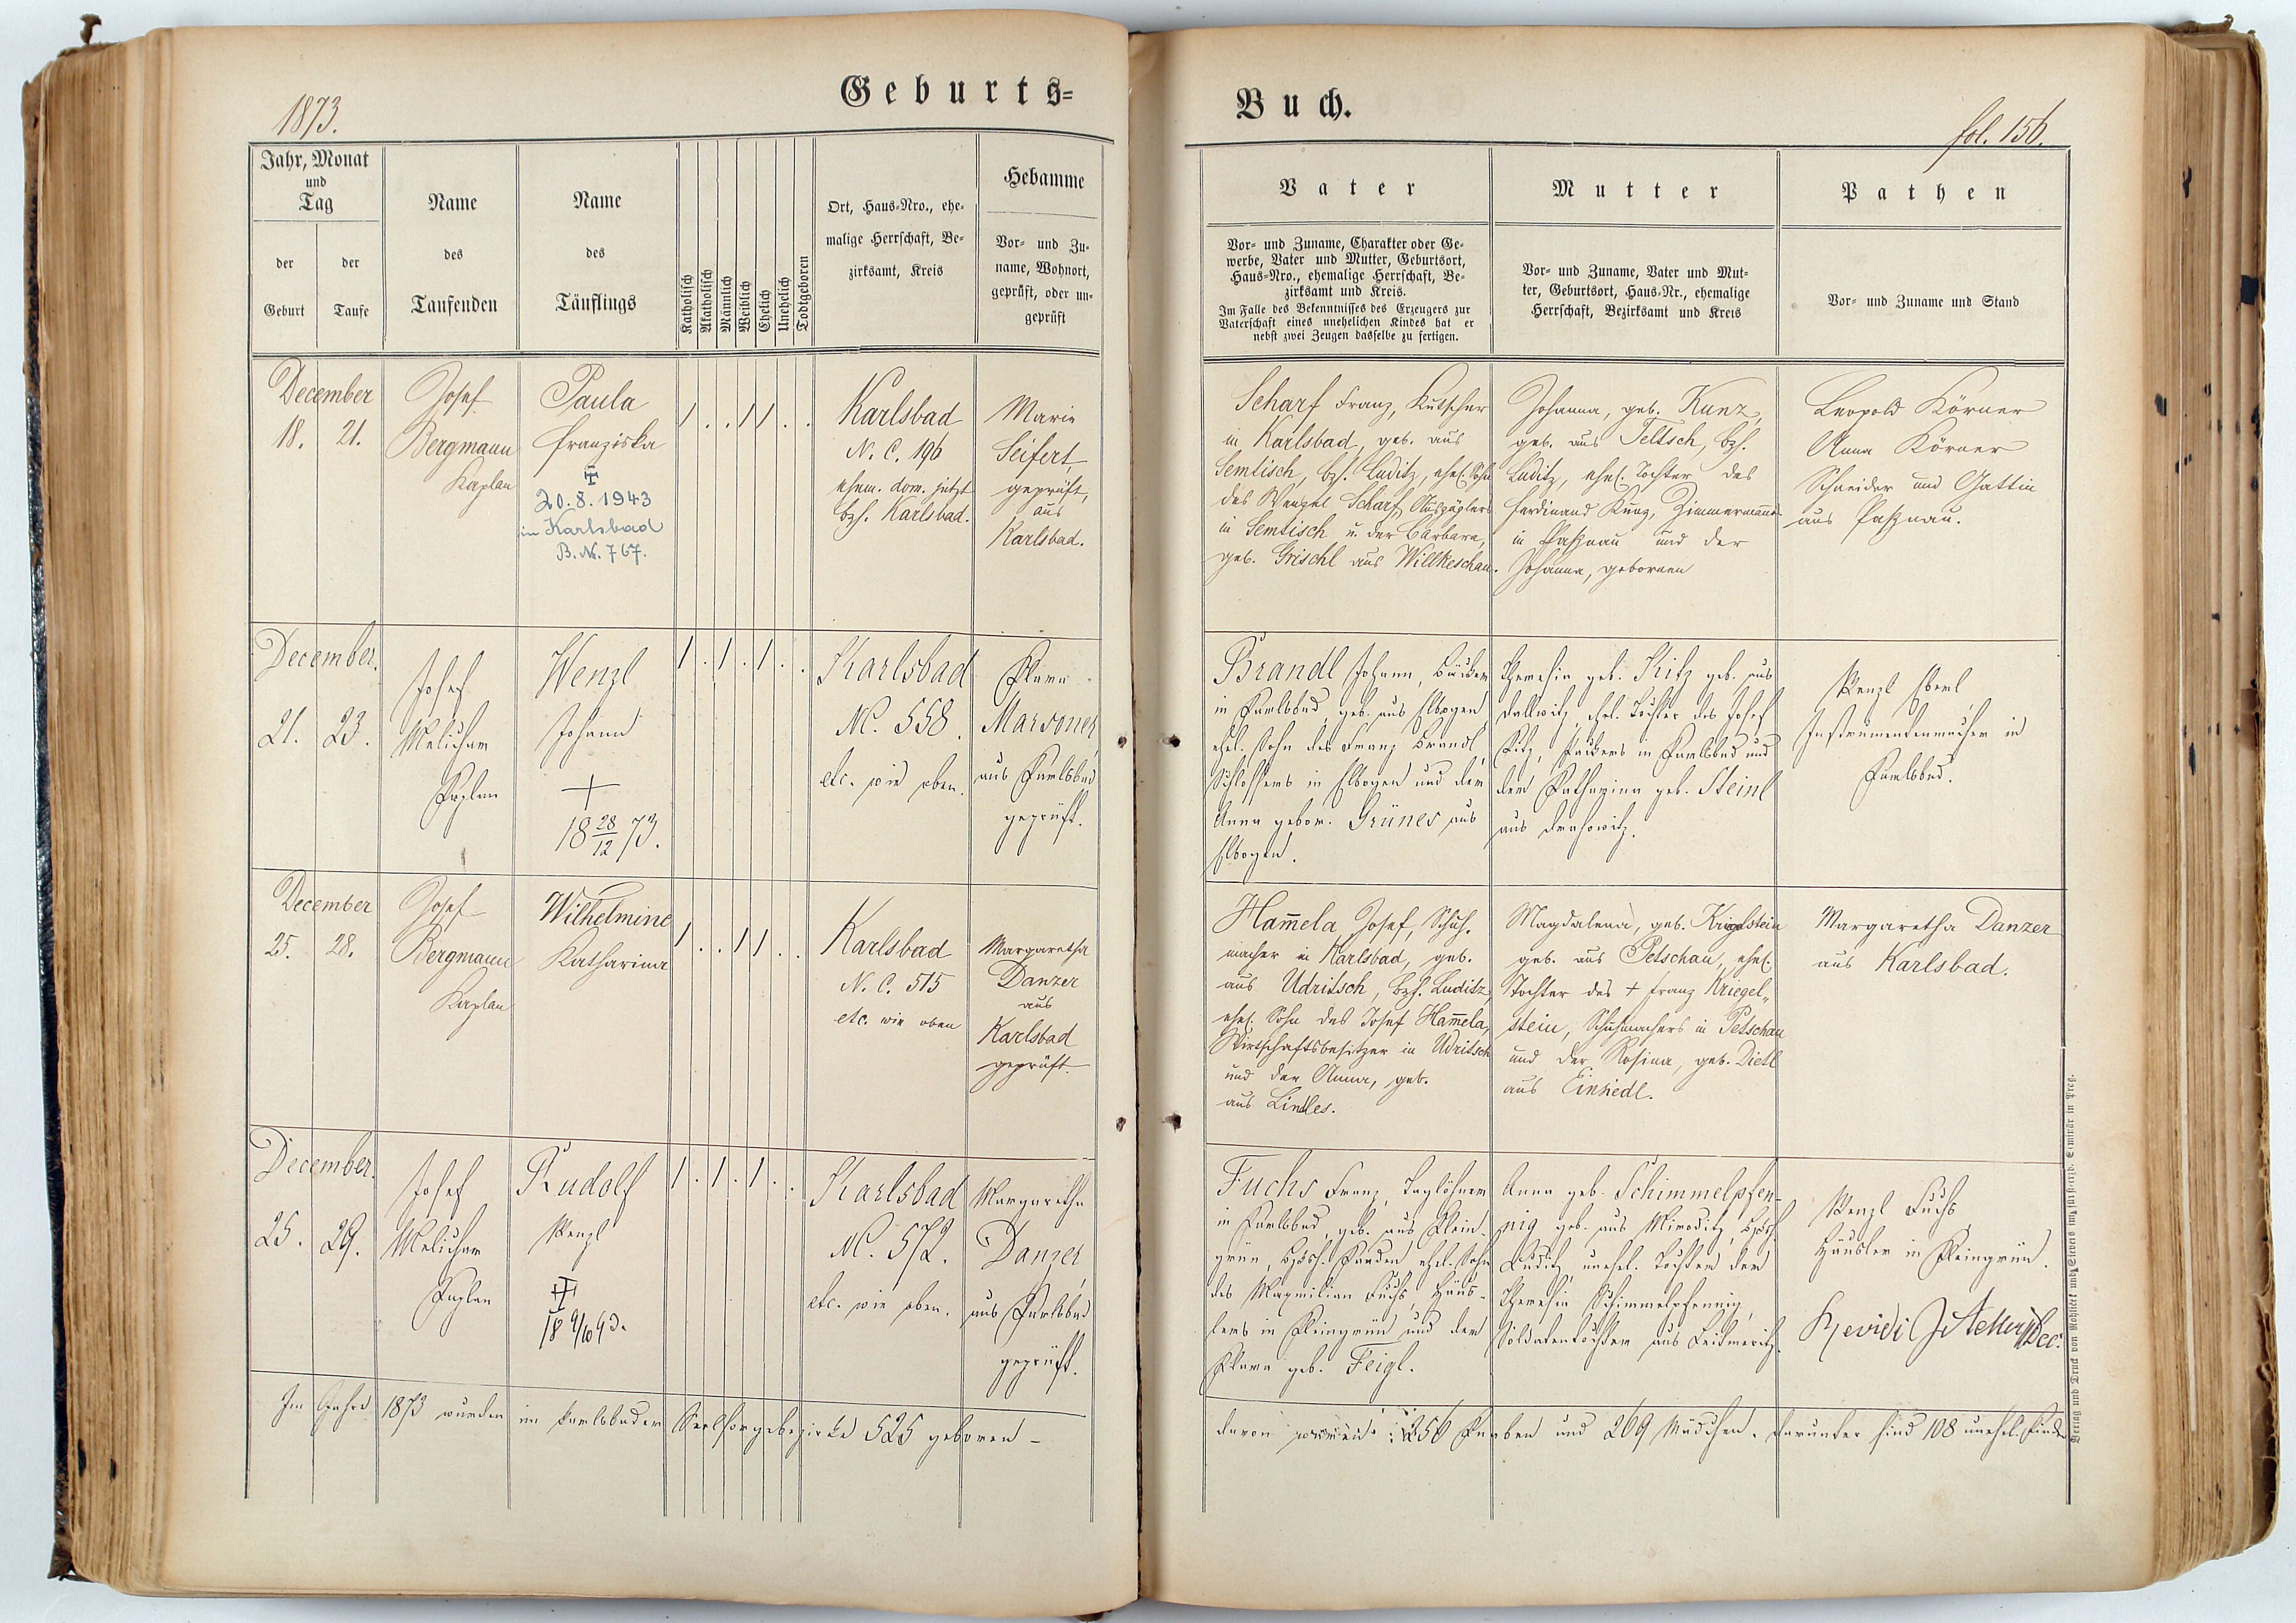 1873.
Geburts-
Buch.
fol. 156.
Jahr, Monat
und
Tag
der
Geburt
der
Taufe
Name
des
Taufenden
Name
des
Täuflings
Katholisch
Akatholisch
Männlich
Weiblich
Ehelich
Unehelich
Todtgeboren
Ort, Haus-Nro., ehe-
malige Herrschaft, Be-
zirksamt, Kreis
Hebamme
Vor- und Zu-
name, Wohnort,
geprüft, oder un-
geprüft
Vater
Vor- und Zuname, Charakter oder Ge-
werbe, Vater und Mutter, Geburtsort,
Haus-Nro., ehemalige Herrschaft, Be-
zirksamt und Kreis.
Im Falle des Bekenntnisses des Erzeugers zur
Vaterschaft eines unehelichen Kindes hat er
nebst zwei Zeugen dasselbe zu fertigen.
Mutter
Vor- und Zuname, Vater und Mut-
ter, Geburtsort, Haus-Nr., ehemalige
Herrschaft, Bezirksamt und Kreis
Pathen
Vor- und Zuname und Stand
December
18. 21.
Josef
Bergmann
Kaplan
Paula
Franziska
20.8.1943
in Karlsbad
B. Nr. 767.
1 . . 1 1 . .
Karlsbad
N. C. 196
ehem. dom. jetzt
bzh. Karlsbad.
Marie
Seifert,
geprüft,
aus
Karlsbad.
Scharf Franz, Kutscher
in Karlsbad, geb. aus
Semtisch, bzh. Luditz, ehel. Sohn
des Wenzel Scharf, Auszüglers
in Semtisch u. der Barbara,
geb. Grischl aus Willkeschau.
Johanna, geb. Kunz,
geb. aus Teltsch, bzh.
Luditz, ehel. Tochter des
Ferdinand Kunz, Zimmermanns
in Paßnau und der
Johanna, gebornen
Leopold Körner
Anna Körner
Schneider und Gattin
aus Paßnau.
December.
21. 23.
Josef
Melichar
Kaplan
Wenzl
Johann
18 28/12 73.
1 . 1 . 1 . .
Karlsbad
N. 558.
etc. wie oben.
Klara
Marsoner
aus Karlsbad
geprüft.
Brandl Johann, Bäcker
in Karlsbad, geb. aus Elbogen
ehel. Sohn des Franz Brandl,
Schlossers in Elbogen und der
Anna gebor. Grünes aus
Elbogen.
Theresia geb. Kitz geb. aus
Dallwitz, ehel. Tochter des Josef
Kitz, in Karlsbad und
der Katharina geb. Steinl
aus Drahowitz.
Wenzl Eberl,
Instrumentenmacher in
Karlsbad.
December
25. 28.
Josef
Bergmann
Kaplan
Wilhelmine
Katharina
1 . . 1 1 . .
Karlsbad
N. C. 515
etc. wie oben
Margaretha
Danzer
aus
Karlsbad
geprüft.
Ham̄ela Josef, Schuh-
macher in Karlsbad, geb.
aus Udritsch, bzh. Luditz,
ehel. Sohn des Josef Ham̄ela,
Wirtschaftsbesitzer in Udritsch
und der Anna, geb.
aus Lindles.
Magdalena, geb. Kriegelstein
geb. aus Petschau, ehel.
Tochter des + Franz Kriegel-
stein, Schuhmachers in Petschau
und der Rosina, geb. Dietl
aus Einsiedl.
Margaretha Danzer
aus Karlsbad.
December.
25. 29.
Josef
Melichar
Kaplan
Rudolf
Wenzl
1 . 1 . 1 . .
Karlsbad
N. 572.
etc. wie oben.
Margaretha
Danzer
aus Karlsbad
geprüft.
Fuchs Franz, Taglöhner
in Karlsbad, geb. aus Klein-
grün, ehel. Sohn
des Maximilian Fuchs, Häus-
lers in Kleingrün und der
Klara geb. Feigl.
Anna geb. Schimmelpfen-
nig geb. aus Miroditz, Bzh.
Luditz, unehel. Tochter der
Theresia Schimmelpfennig,
Soldatentochter aus Leitmeritz.
Wenzl Fuchs
Häusler in Kleingrün.
Im Jahre 1873 wurden im Karlsbader Seelsorgebezirke 525 geboren -
davon 256 Knaben und 269 Mädchen. Darunter sind 108 unehel. Kinder